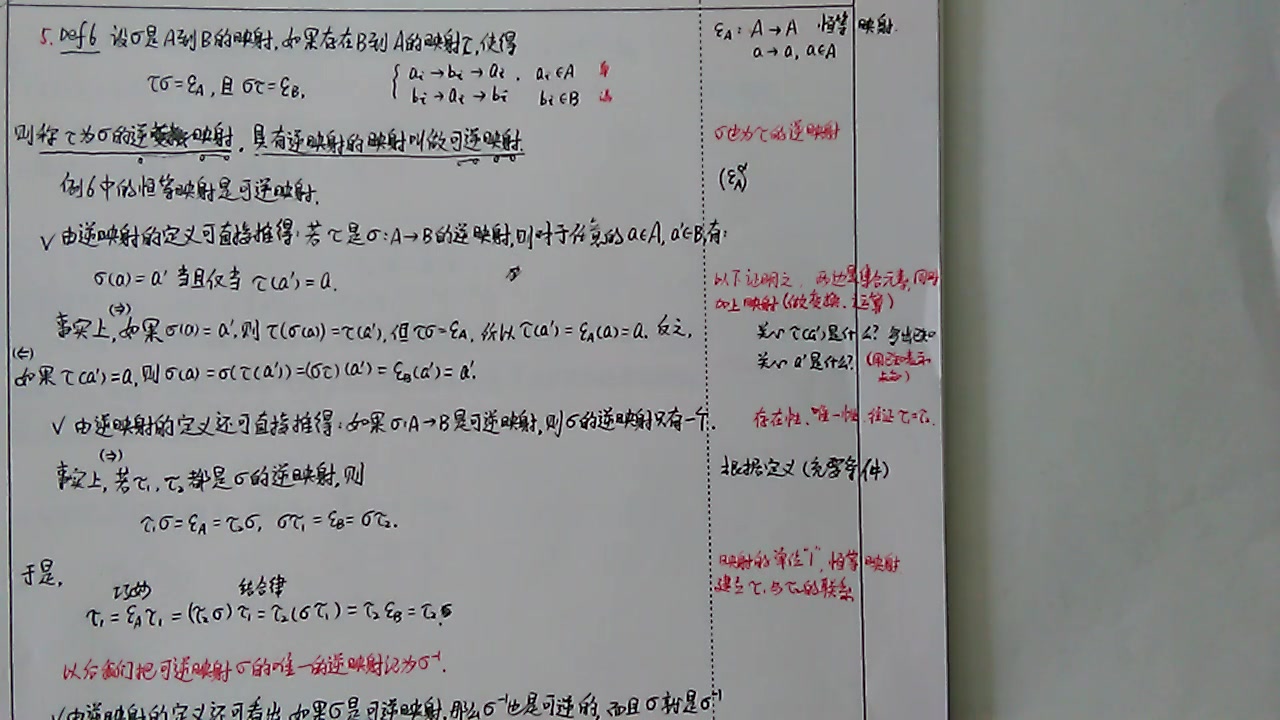 5. Def6 设σ是A到B的映射,如果存在B到A的映射τ,使得
τσ=ε_A,且 στ=ε_B,
{ a_i→b_i→a_i, a_i∈A 单
b_i→a_i→b_i b_i∈B 满
则称τ为σ的逆映射. 具有逆映射的映射叫做可逆映射.
例6中的恒等映射是可逆映射.
√ 由逆映射的定义可直接推得:若τ是σ:A→B的逆映射,则对于任意的a∈A, a'∈B,有:
σ(a)=a' 当且仅当 τ(a')=a.
(⇒)
事实上,如果σ(a)=a',则τ(σ(a))=τ(a'),但τσ=ε_A,所以τ(a')=ε_A(a)=a. 反之,
(⇐)
如果τ(a')=a,则σ(a)=σ(τ(a'))=(στ)(a')=ε_B(a')=a'.
√ 由逆映射的定义还可直接推得:如果σ:A→B是可逆映射,则σ的逆映射只有一个.
(⇒)
事实上,若τ₁,τ₂都是σ的逆映射,则
τ₁σ=ε_A=τ₂σ, στ₁=ε_B=στ₂.
于是,
巧妙 结合律
τ₁=ε_Aτ₁=(τ₂σ)τ₁=τ₂(στ₁)=τ₂ε_B=τ₂.
以后我们把可逆映射σ的唯一的逆映射记为σ⁻¹.
√由逆映射的定义还可看出,如果σ是可逆映射,那么σ⁻¹也是可逆的,而且σ就是σ⁻¹
ε_A: A→A 恒等映射.
a→a, a∈A
σ也为τ的逆映射
以下证明之,两边是集合元素,同时
加上映射(做变换、运算)
关心τ(a')是什么?
关心a'是什么?
存在性、唯一性,往证τ₁=τ₂.
根据定义(充要条件)
映射的单位"1",恒等映射
建立τ₁与τ₂的联系